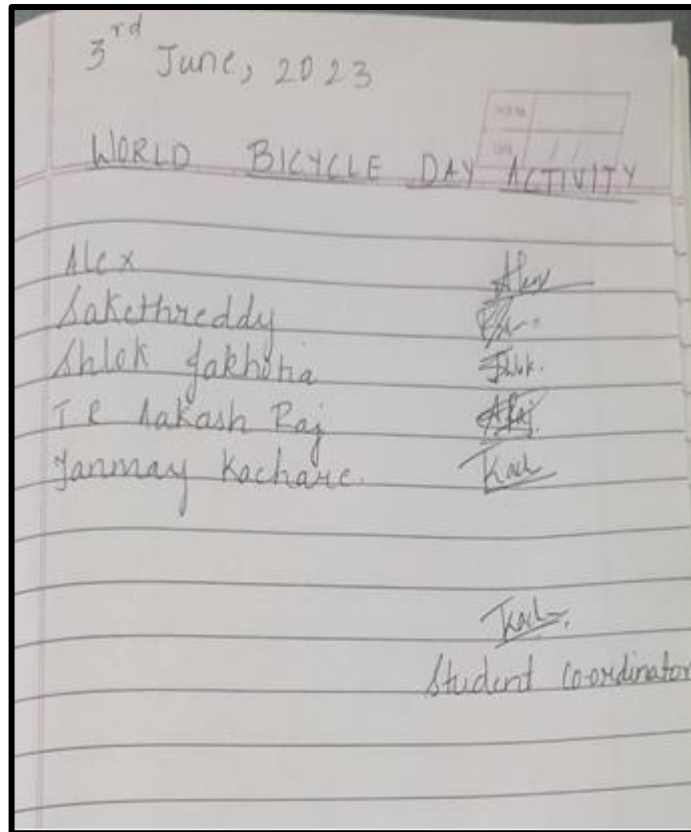 3rd June, 2023
WORLD BICYCLE DAY ACTIVITY
Alex Alex
Sakethreddy
Shlok Jakhotia Shlok.
T R Aakash Raj ARaj.
Tanmay Kachare. TKach
TKach.
Student Co-ordinator